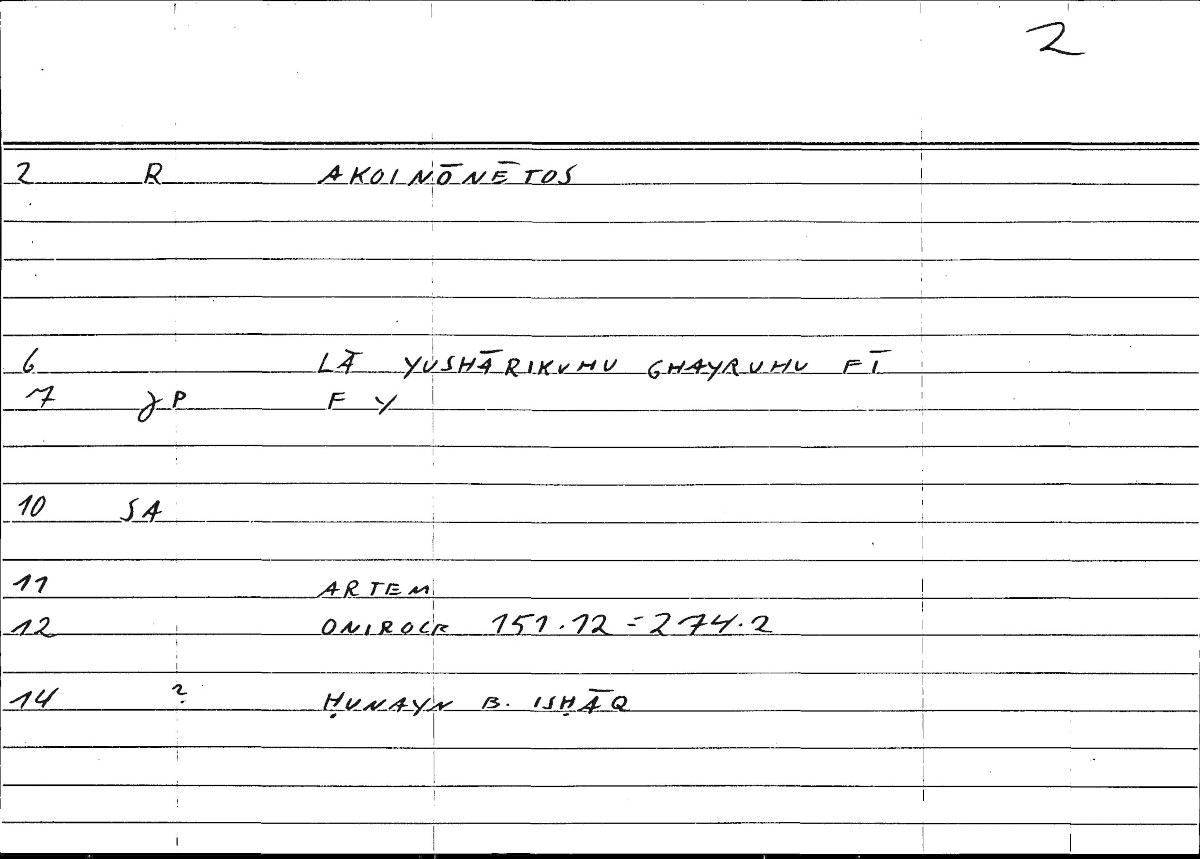 2
2 R AKOINŌNĒTOS
6 LĀ YUSHĀRIKUHU GHAYRUHU FĪ
7 P F Y
10 SA
11 ARTEM
12 ONIROCR 151.12 = 274.2
14 ? ḤUNAYN B. ISḤĀQ